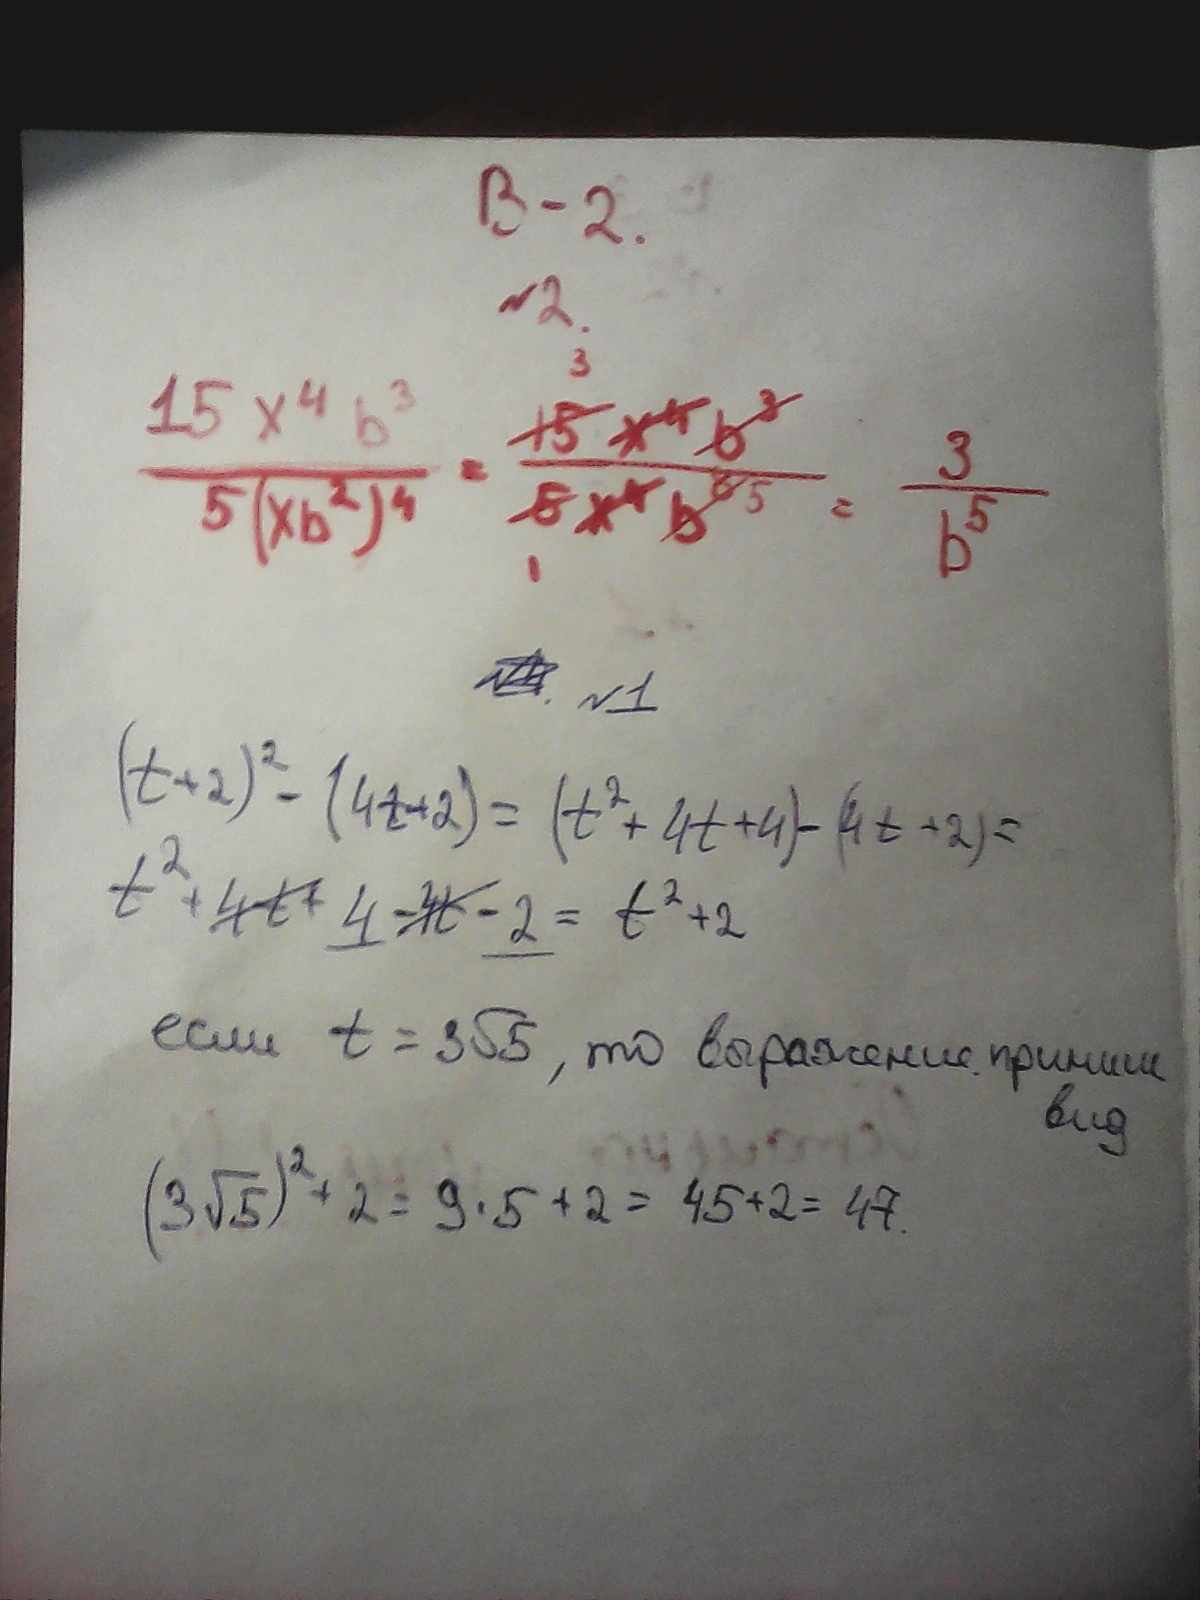 В-2.
№2.
15x⁴b³/5(xb²)⁴ = 15x⁴b³/5x⁴b⁸ = 3/b⁵
3
5
1
№1
(t+2)² - (4t+2) = (t² + 4t+4) - (4t+2) =
t² + 4t + 4 - 4t - 2 = t² + 2
если t = 3√5, то выражение
вид
(3√5)² + 2 = 9·5 + 2 = 45+2 = 47.